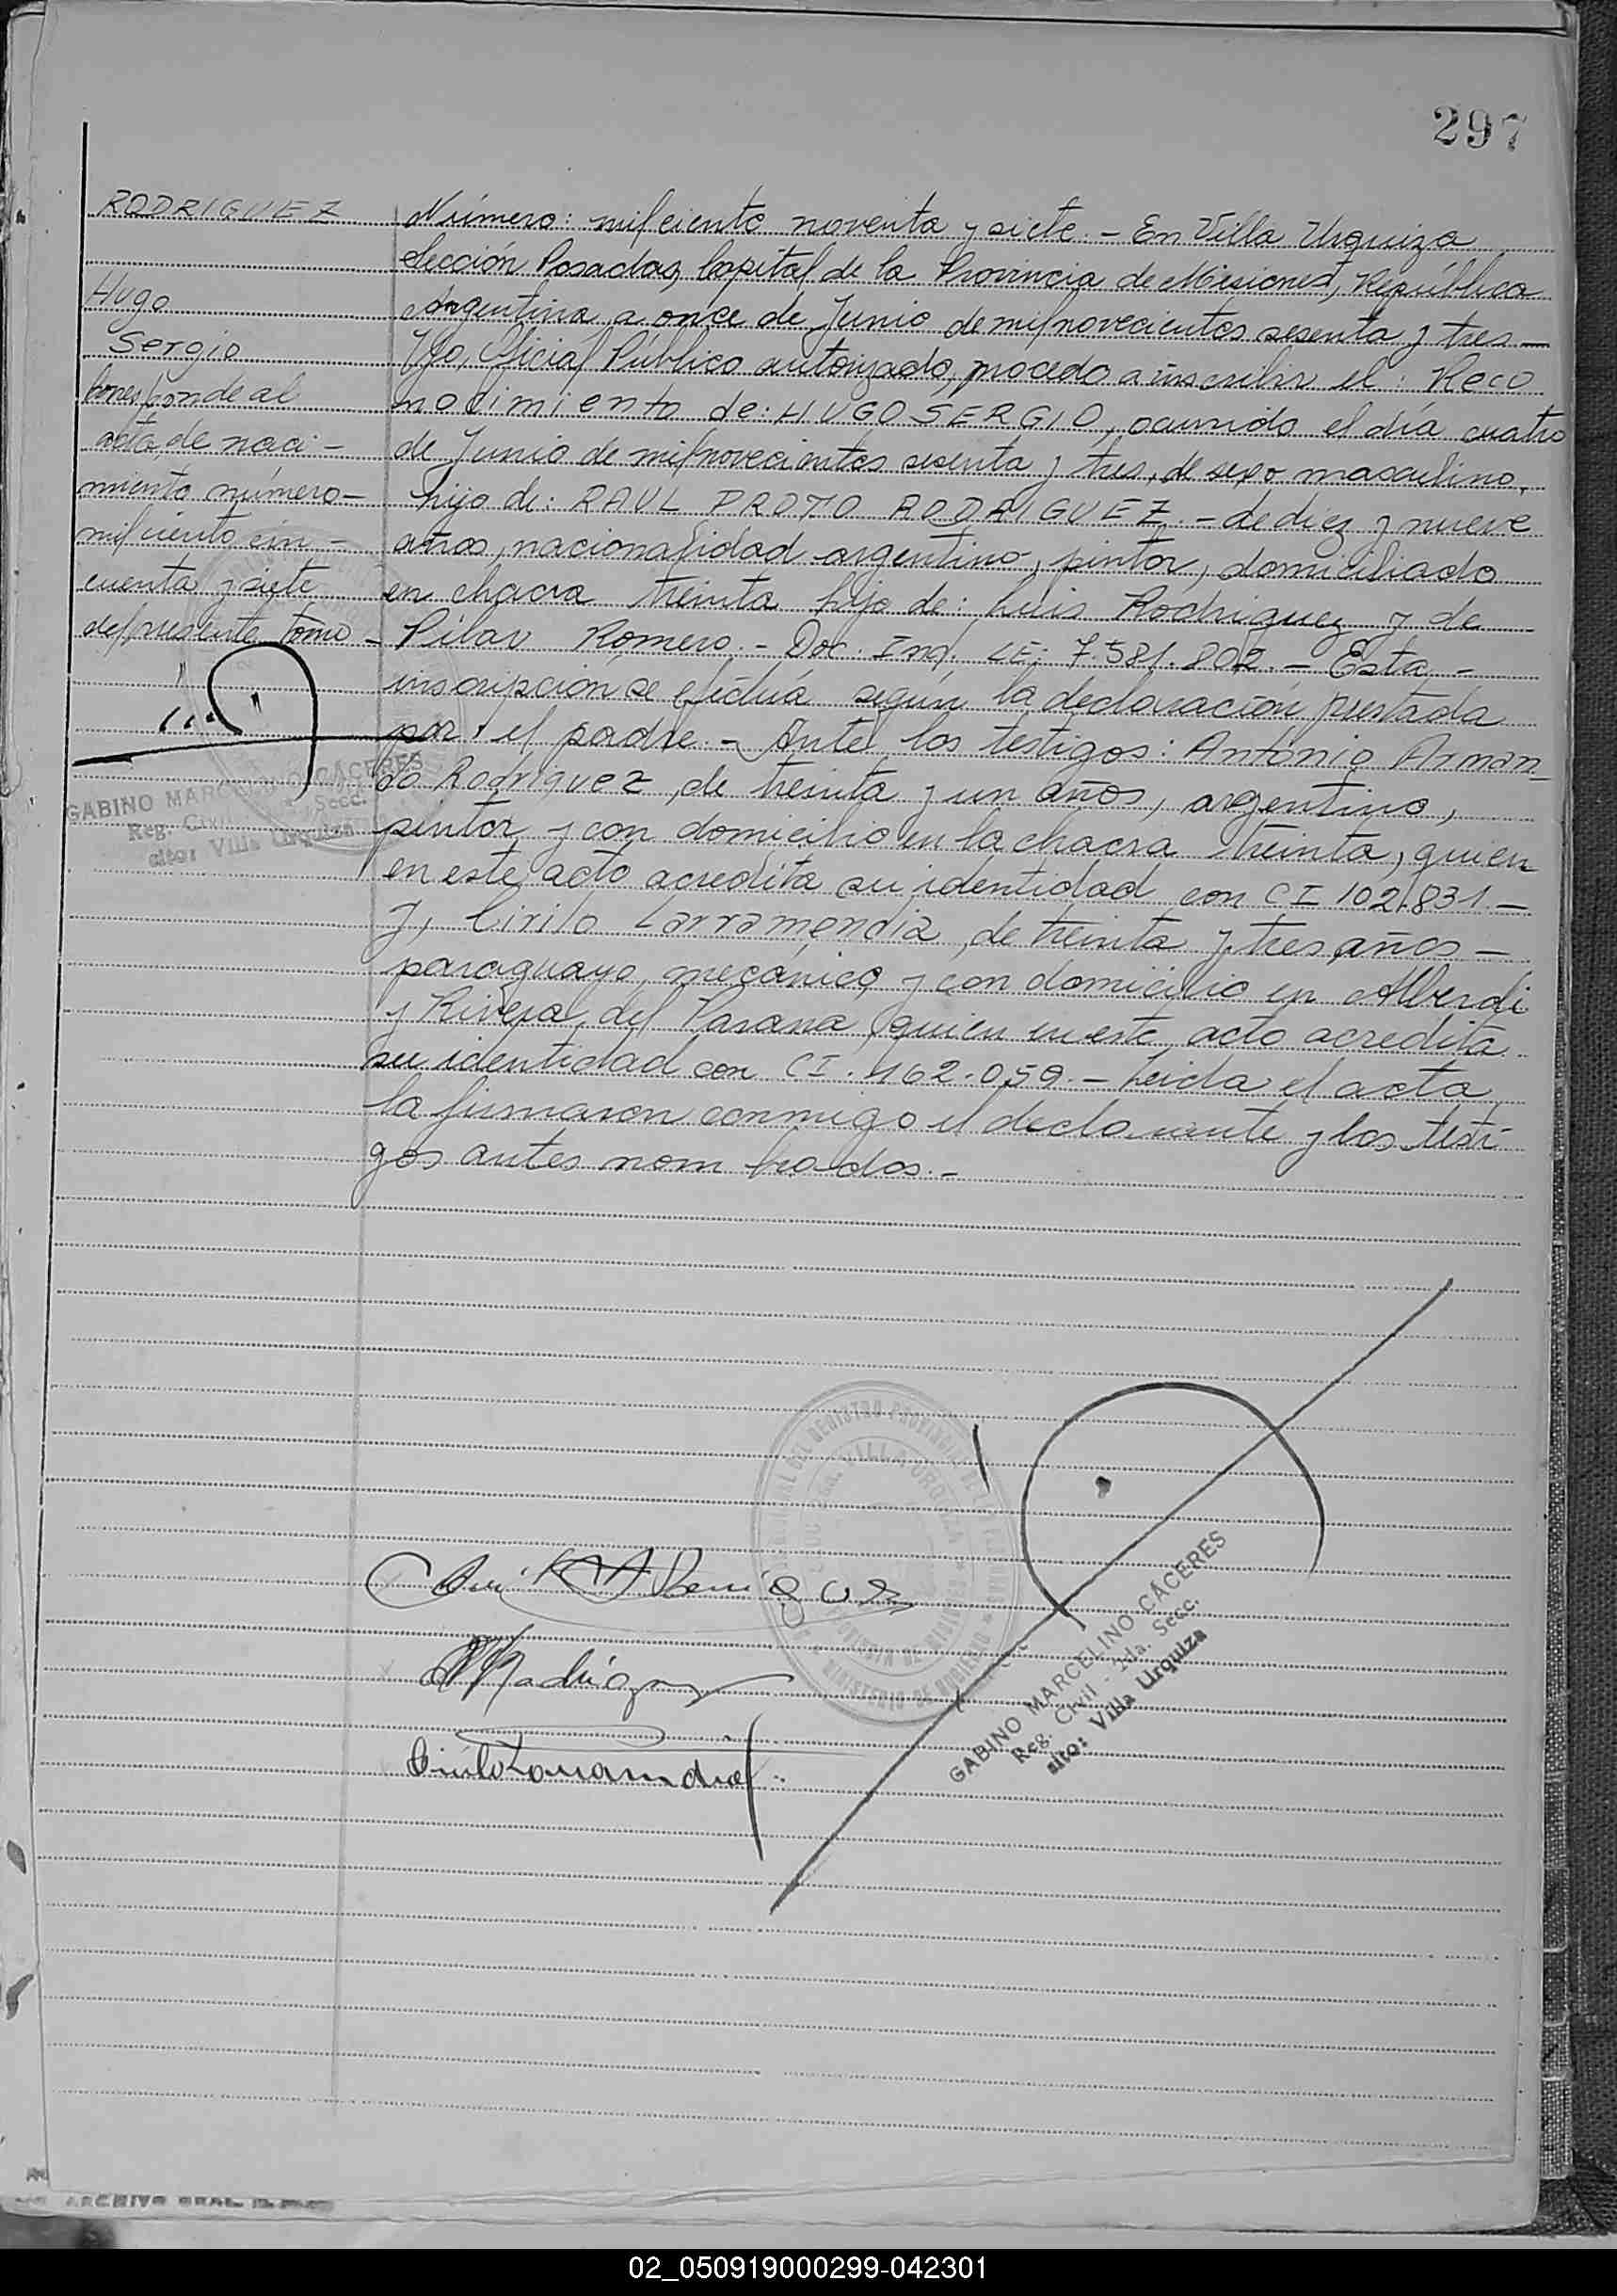 297
RODRIGUEZ
Hugo
Sergio
Corresponde al
acta de naci-
miento número-
mil ciento cin-
cuenta y siete
del presente tomo-
GABINO MARCELINO CÁCERES
Reg. Civil Secc.
alto: Villa Urquiza
Número: mil ciento noventa y siete.- En Villa Urquiza
Sección Posadas, Capital de la Provincia de Misiones, República
Argentina a once de Junio de mil novecientos sesenta y tres—
Yo, Oficial Público autorizado, procedo a inscribir el: Reco
nocimiento de: HUGO SERGIO, ocurrido el día cuatro
de Junio de mil novecientos sesenta y tres, de sexo masculino,
hijo de: RAUL PROTO RODRIGUEZ.- de diez y nueve
años, nacionalidad argentino, pintor, domiciliado
en chacra treinta hijo de: Luis Rodriguez y de
Pilar Romero.- Doc. Ind. LE: 7.581.802.- Esta-
inscripción se efectúa según la declaración prestada
por el padre.- Ante los testigos: Antonio Arman-
do Rodriguez, de treinta y un años, argentino,
pintor y con domicilio en la chacra treinta, quien
en este acto acredita su identidad con CI 102.831.-
y, Cirilo Larramendia, de treinta y tres años-
paraguayo, mecánico, y con domicilio en Alberdi
y Rivera del Parana, quien en este acto acredita
su identidad con CI. 162.059.- Leida el acta
la firmaron conmigo el declarante y los testi-
gos antes nombrados.-
VILLA URQUIZA
MINISTERIO DE GOBIERNO
GABINO MARCELINO CÁCERES
Reg. Civil - 2da. Secc.
alto: Villa Urquiza
Cirilo Larramendia
02_050919000299-042301